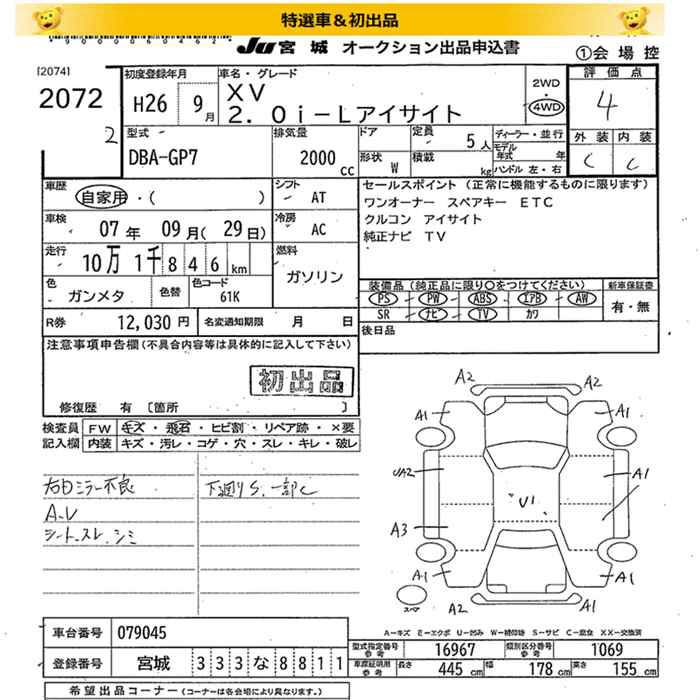 特選車＆初出品
JU 宮城 オークション出品申込書
①会場控
[2074]
2072
2
初度登録年月
H26 9月
車名・グレード
XV
2．0i－Lアイサイト
2WD
・
4WD
評価点
4
外装 内装
C C
型式
DBA-GP7
排気量
2000 cc
ドア
形状 W
定員 5人
積載 kg
ディーラー・並行
モデル年式 年
ハンドル 左・右
車歴
自家用・( )
シフト AT
車検
07年 09月(29日)
冷房 AC
走行
10万 1千 8 4 6 km
燃料
ガソリン
色
ガンメタ
色替
色コード
61K
R券 12,030円
名変通知期限 月 日
セールスポイント（正常に機能するものに限ります）
ワンオーナー スペアキー ETC
クルコン アイサイト
純正ナビ TV
装備品（純正品に限り○をつけてください）
PS PW ABS エアB AW
SR ナビ TV カワ
新車保証書
有・無
後日品
注意事項申告欄（不具合内容等は具体的に記入して下さい）
初出品
修復歴 有〔箇所 〕
検査員
記入欄
FW キズ・飛石・ヒビ割・リペア跡・×要
内装 キズ・汚レ・コゲ・穴・スレ・キレ・破レ
右ロミラー不良
下廻りS、一部C
A.U
シート、スレ、シミ
A2 A2
A1 A1
UA2 A1
U1
A3 A1
A1 A1
A2 A1
スペア
A－キズ E－エクボ U－凹み W－補修跡 S－サビ C－腐食 XX－交換済
車台番号 079045
登録番号 宮城 3 3 3 な 8 8 1 1
型式指定番号 参考 16967
類別区分番号 参考 1069
車庫証明用 参考 長さ 445 cm 幅 178 cm 高さ 155 cm
希望出品コーナー（コーナーは各会場により異なります。）